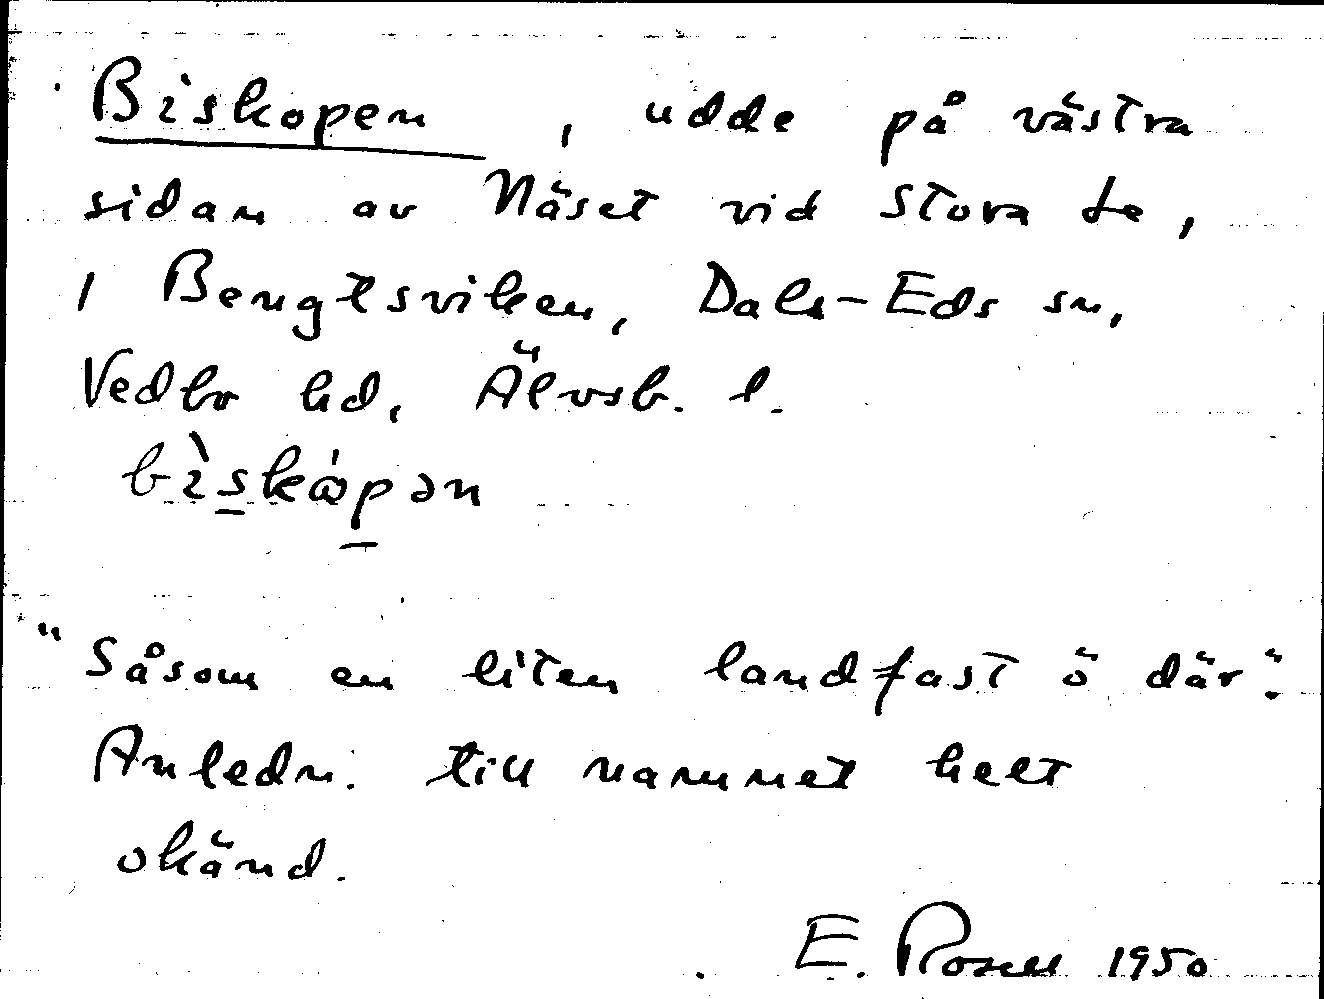 Biskopen, udde på västra
sidan av Näset vid Stora Le,
i Bengtsviken, Dals-Eds sn,
Vedbo hd, Älvsb. l.
bìskòpən
"Såsom en liten landfast ö där".
Anledn. till namnet helt
okänd.
E. Rosell 1950